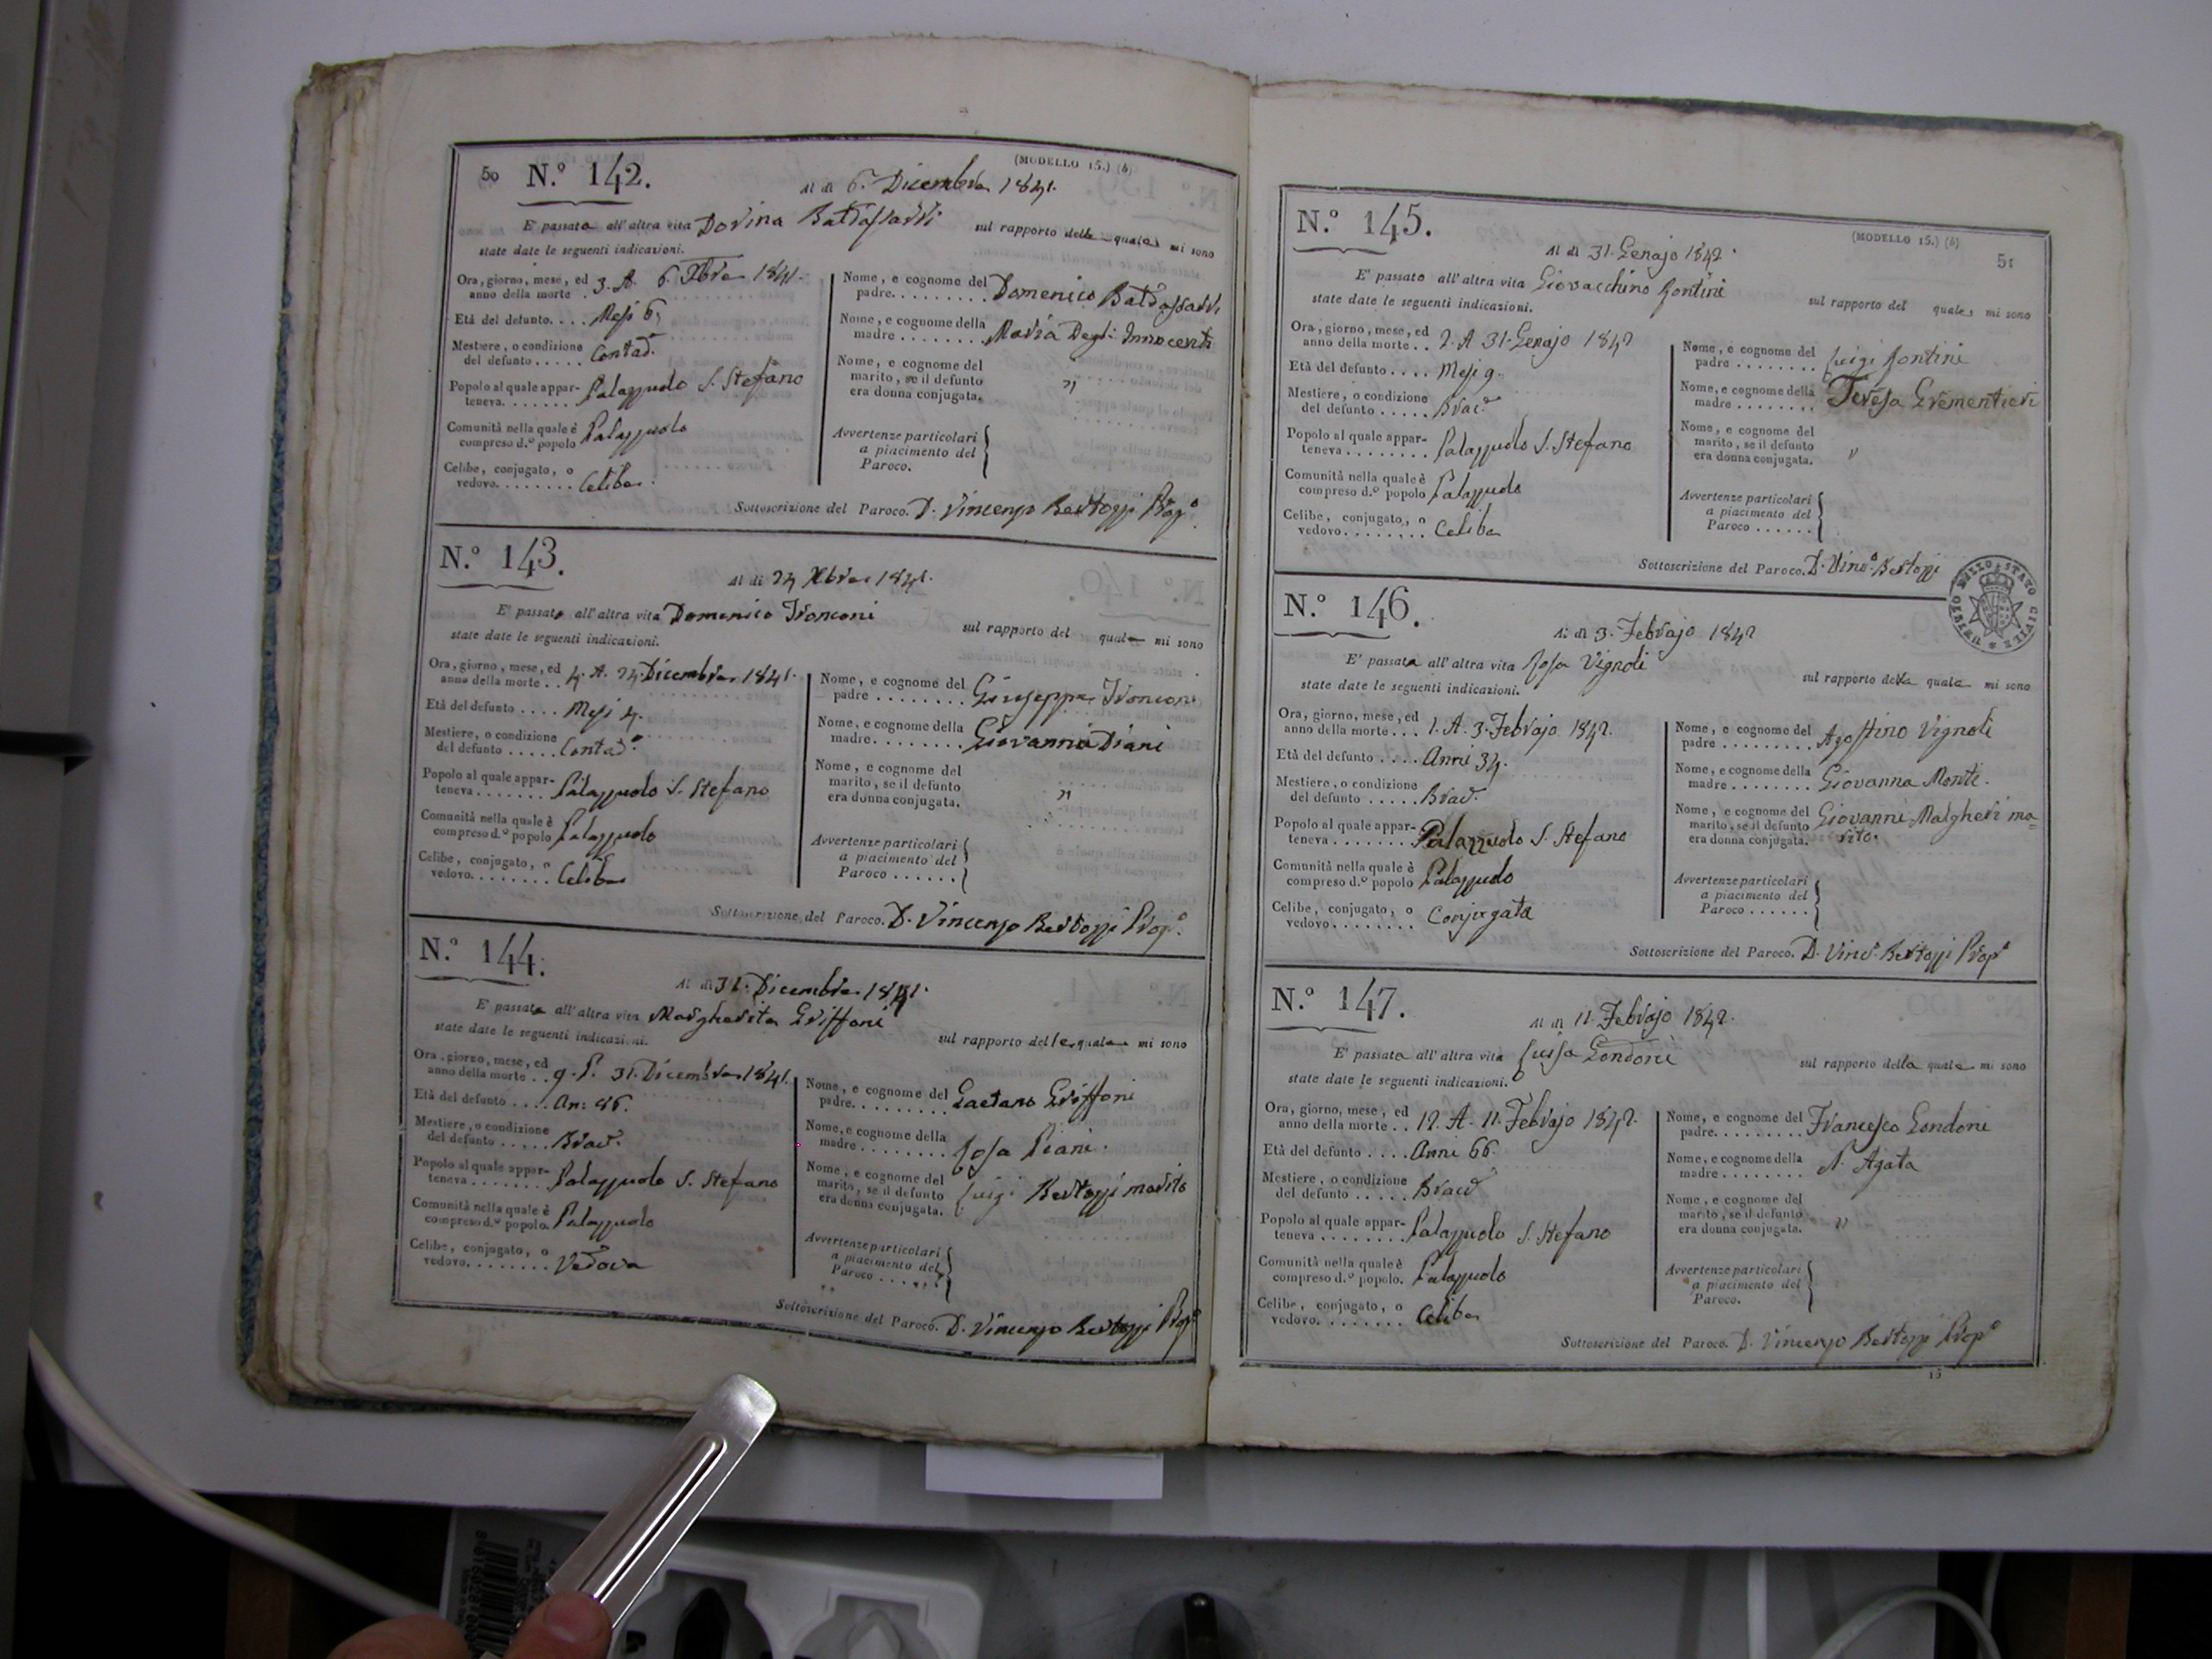 50 N.º 142. (MODELLO 15.) (b)
Al dì 6. Dicembre 1841.
E' passata all'altra vita Dorina Baldassarri sul rapporto della quale mi sono
state date le seguenti indicazioni.
Ora, giorno, mese, ed
anno della morte . 3. A. 6. Xbre 1841.
Età del defunto. . . . Mesi 6.
Mestiere, o condizione
del defunto . . . . . Contad.
Popolo al quale appar-
teneva. . . . . . . Palazzuolo S. Stefano
Comunità nella quale è
compreso d.º popolo Palazzuolo
Celibe, conjugato, o
vedovo. . . . . . . . Celibe.
Nome, e cognome del
padre. . . . . . . . . Domenico Baldassarri
Nome, e cognome della
madre . . . . . . . . Maria Degl'Innocenti
Nome, e cognome del
marito, se il defunto
era donna conjugata. "
Avvertenze particolari
a piacimento del
Paroco.
Sottoscrizione del Paroco. D. Vincenzo Bertozzi Prop.º
N.º 143.
Al dì 24 Xbre 1841.
E' passato all'altra vita Domenico Tronconi sul rapporto del quale mi sono
state date le seguenti indicazioni.
Ora, giorno, mese, ed
anno della morte . . 4. A. 24. Dicembre 1841.
Età del defunto . . . . Mesi 4.
Mestiere, o condizione
del defunto . . . . . Contad.º
Popolo al quale appar-
teneva . . . . . . . Palazzuolo S. Stefano
Comunità nella quale è
compreso d.º popolo Palazzuolo
Celibe, conjugato, o
vedovo. . . . . . . . Celibe
Nome, e cognome del
padre . . . . . . . . Giuseppe Tronconi
Nome, e cognome della
madre. . . . . . . . Giovanna Diani
Nome, e cognome del
marito, se il defunto
era donna conjugata. "
Avvertenze particolari
a piacimento del
Paroco . . . . . .
Sottoscrizione del Paroco. D. Vincenzo Bertozzi Prop.º
N.º 144.
Al dì 31. Dicembre 1841.
E' passata all'altra vita Margherita Griffoni sul rapporto della quale mi sono
state date le seguenti indicazioni.
Ora, giorno, mese, ed
anno della morte . . 9. P. 31. Dicembre 1841.
Età del defunto . . . . An:
Mestiere, o condizione
del defunto . . . . . Brac.
Popolo al quale appar-
teneva . . . . . . . Palazzuolo S. Stefano
Comunità nella quale è
compreso d.º popolo. Palazzuolo
Celibe, conjugato, o
vedovo. . . . . . . . Vedova
Nome, e cognome del
padre. . . . . . . . . Gaetano Griffoni
Nome, e cognome della
madre . . . . . . . . Rosa Piani.
Nome, e cognome del
marito, se il defunto
era donna conjugata. Luigi Bertozzi marito
Avvertenze particolari
a piacimento del
Paroco . . . . . .
Sottoscrizione del Paroco. D. Vincenzo Bertozzi Prop.º
N.º 145. (MODELLO 15.) (b) 51
Al dì 31. Genajo 1842.
E' passato all'altra vita Giovacchino Rontini sul rapporto del quale mi sono
state date le seguenti indicazioni.
Ora, giorno, mese, ed
anno della morte . . 2. A 31. Genajo 1842
Età del defunto . . . . Mesi 9.
Mestiere, o condizione
del defunto . . . . . Brac.
Popolo al quale appar-
teneva . . . . . . . . Palazzuolo S. Stefano
Comunità nella quale è
compreso d.º popolo Palazzuolo
Celibe, conjugato, o
vedovo. . . . . . . . Celibe
Nome, e cognome del
padre . . . . . . . . Luigi Rontini
Nome, e cognome della
madre . . . . . . . . Teresa Grementieri
Nome, e cognome del
marito, se il defunto
era donna conjugata. "
Avvertenze particolari
a piacimento del
Paroco . . . . . .
Sottoscrizione del Paroco. D. Vinc.º Bertozzi
UFIZIO DELLO STATO CIVILE
N.º 146.
Al dì 3. Febrajo 1842
E' passata all'altra vita Rosa Vignoli sul rapporto della quale mi sono
state date le seguenti indicazioni.
Ora, giorno, mese, ed
anno della morte . . . 1. A. 3. Febrajo 1842.
Età del defunto . . . . Anni 34.
Mestiere, o condizione
del defunto . . . . . Brac.
Popolo al quale appar-
teneva . . . . . . . Palazzuolo S. Stefano
Comunità nella quale è
compreso d.º popolo Palazzuolo
Celibe, conjugato, o
vedovo. . . . . . . . Conjugata
Nome, e cognome del
padre . . . . . . . . . Agostino Vignoli
Nome, e cognome della
madre . . . . . . . . Giovanna Monti.
Nome, e cognome del
marito, se il defunto
era donna conjugata. Giovanni Malgheri ma=
rito.
Avvertenze particolari
a piacimento del
Paroco . . . . . .
Sottoscrizione del Paroco. D. Vinc.º Bertozzi Prop.º
N.º 147.
Al dì 11. Febrajo 1842.
E' passata all'altra vita Luisa Londoni sul rapporto della quale mi sono
state date le seguenti indicazioni.
Ora, giorno, mese, ed
anno della morte . . 12. A. 11. Febrajo 1842.
Età del defunto . . . . Anni 66.
Mestiere, o condizione
del defunto . . . . . Brac.
Popolo al quale appar-
teneva . . . . . . . . Palazzuolo S. Stefano
Comunità nella quale è
compreso d.º popolo. Palazzuolo
Celibe, conjugato, o
vedovo. . . . . . . . Celibe
Nome, e cognome del
padre. . . . . . . . . Francesco Londoni
Nome, e cognome della
madre . . . . . . . N. Agata
Nome, e cognome del
marito, se il defunto
era donna conjugata. "
Avvertenze particolari
a piacimento del
Paroco.
Sottoscrizione del Paroco. D. Vincenzo Bertozzi Prop.º
15